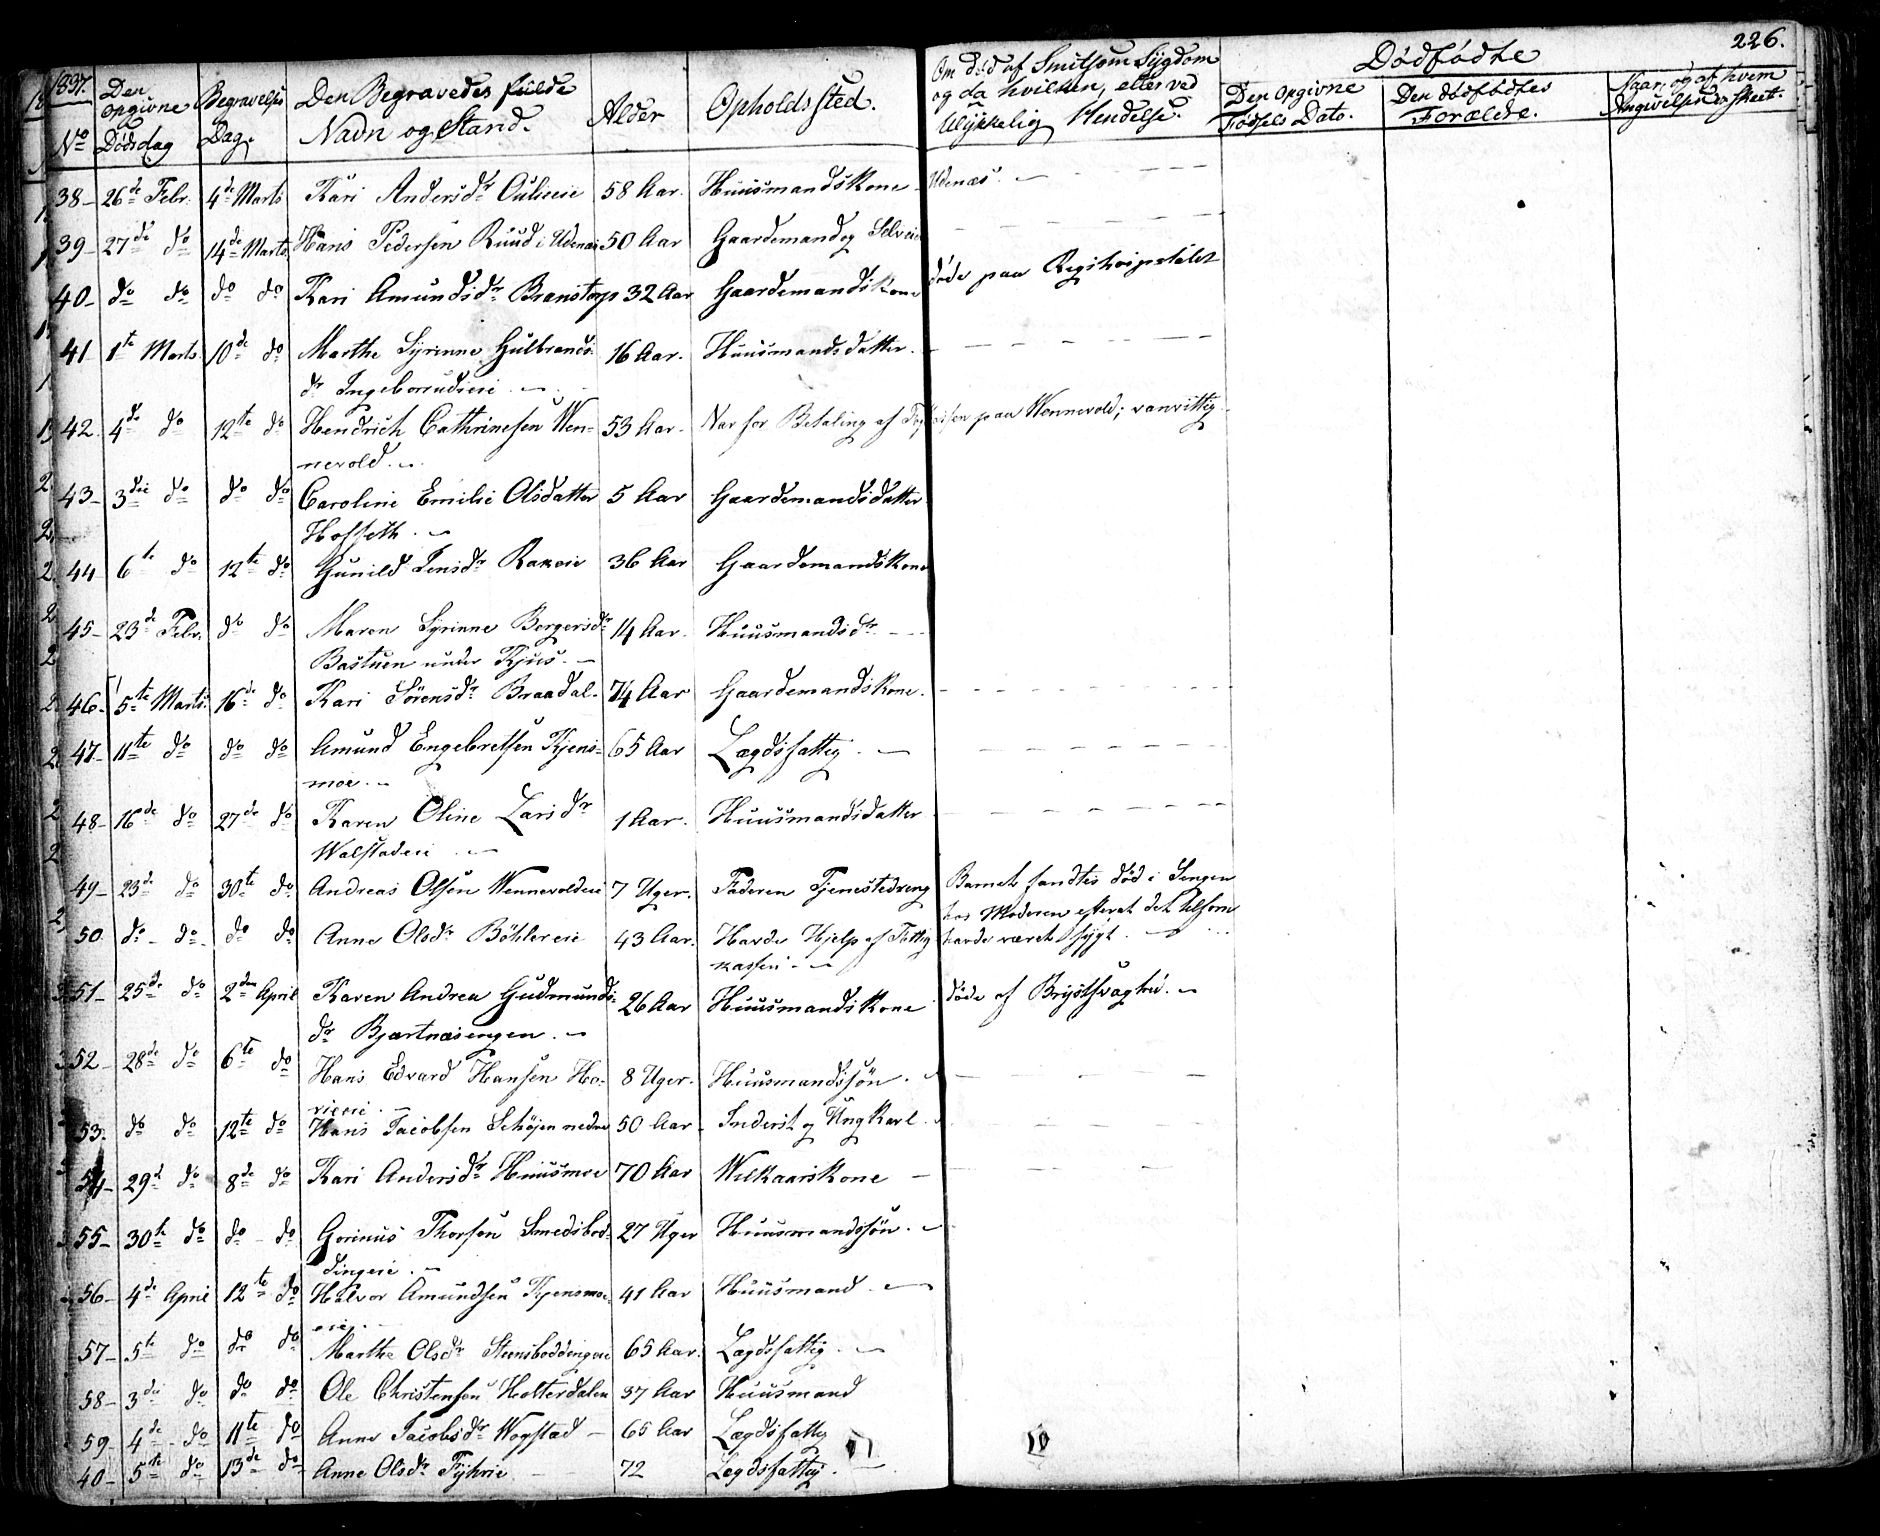 226.
1837.
No
Den opgivne Dödsdag
Begravelses Dag.
Den Begravedes fulde Navn og Stand.
Alder
Opholdssted.
Om död af Smitsom Sÿgdom og da hvilken, eller ved Ulÿkkelig Hendelse.
Dødfødte
Den Opgivne Fødsels Dato.
Den dødfødtes Forældre.
Naar, og af hvem Angivelsen er skeet.
38 – 26de Febr. 4de Marts Kari Andersdr 58 Aar. Huusmandskone Udenæs. –
39 – 27de do 14de Marts Hans Pedersen Ruud i Udenæs 50 Aar Gaardemand og Selveier
40 – do do do do Kari Amundsdr Branstorp 32 Aar Gaardemandskone döde paa Rigshospitalet
41 1te Marts 10de do Marthe Sÿrinne Gulbrands- 16 Aar. Huusmandsdatter.
dr Ingeborrudeie. –
42. 4de do 12te do Hendrich Cathrinesen Wen- 53 Aar. Var for Betaling af paa Wennevold; vanvittig.
nevold. –
43 – 3die do do do Caroline Emilie Olsdatter 5 Aar Gaardemandsdatter
Hofseth. –
44 6te do 12te do Gunild Jensdr 36 Aar Gaardemandskone
45 – 23de Febr. do do Maren Sÿrinne Bergersdr 14 Aar. Huusmandsdr –
Bastuen under Kjus. –
46 – 5te Marts. 16de do Kari Sörensdr Braadal. 74 Aar Gaardemandskone.
47 – 11te do do do Amund Engebretsen Kjens- 65 Aar Lægdsfattig. –
moe. –
48 – 16de do 27de do Karen Oline Larsdr 1 Aar. Huusmandsdatter
Walstadeie –
49 – 23de do 30te do Andreas Olsen Wennevoldeie 7 Uger. Faderen Tjenestedreng Barnet fandtes död i Sengen
hos Moderen efterat det tilforn
50 do – do – do do Anne Olsdr Böhlereie 43 Aar. Havde Hjelp af Fattig havde været sÿgt. –
kassen. –
51 – 25de do 2den April Karen Andrea Gudmunds- 26 Aar Huusmandskone döde af Brÿstsvaghed. –
dr Bjærtnæsengen. –
52 – 28de do 6te do Hans Edvard Hansen Ho- 8 Uger. Huusmandssön.
vieeie. –
53. do do 12te do Hans Jacobsen Schöjen nedre 50 Aar – Inderst og Ungkarl.
54 – 29de do 8de do Kari Andersdr Huusmoe 70 Aar Wilkaarskone –
55 – 30te do do – do Gorinus Thorsen Smedsbod- 27 Uger Huusmandssön. –
dingeie. –
56 – 4de April 12te do Halvor Amundsen Kjensmoe- 41 Aar Huusmand. –
eie. –
57 – 5te do do do Marthe Olsdr Steensboddingeie 65 Aar. Lægdsfattig. –
58 – 3die do do do Ole Christensen Holterdalen 37 Aar Huusmand
59 – 4de do 11te do Anne Jacobsdr Wogstad – 65 Aar Lægdsfattig
40 – 5te do 13de do Anne Olsdr 72 Lægdsfattig. –